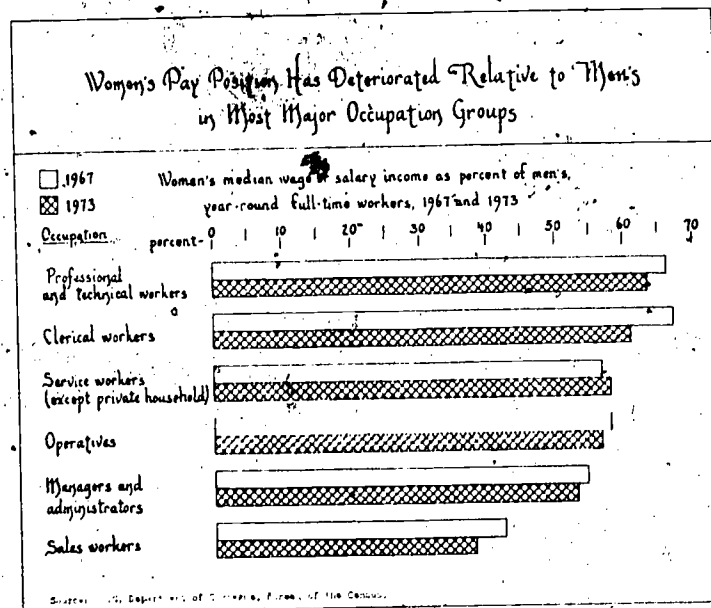 Women's Pay Position Has Deteriorated Relative to Men's
in Most Major Occupation Groups
1967
1973
Women's median wage or salary income as percent of men's,
year-round full-time workers, 1967 and 1973
Occupation
percent-
0 10 20 30 40 50 60 70
Professional
and technical workers
Clerical workers
Service workers
(except private household)
Operatives
Managers and
administrators
Sales workers
Source: Department of Commerce, Bureau of the Census.